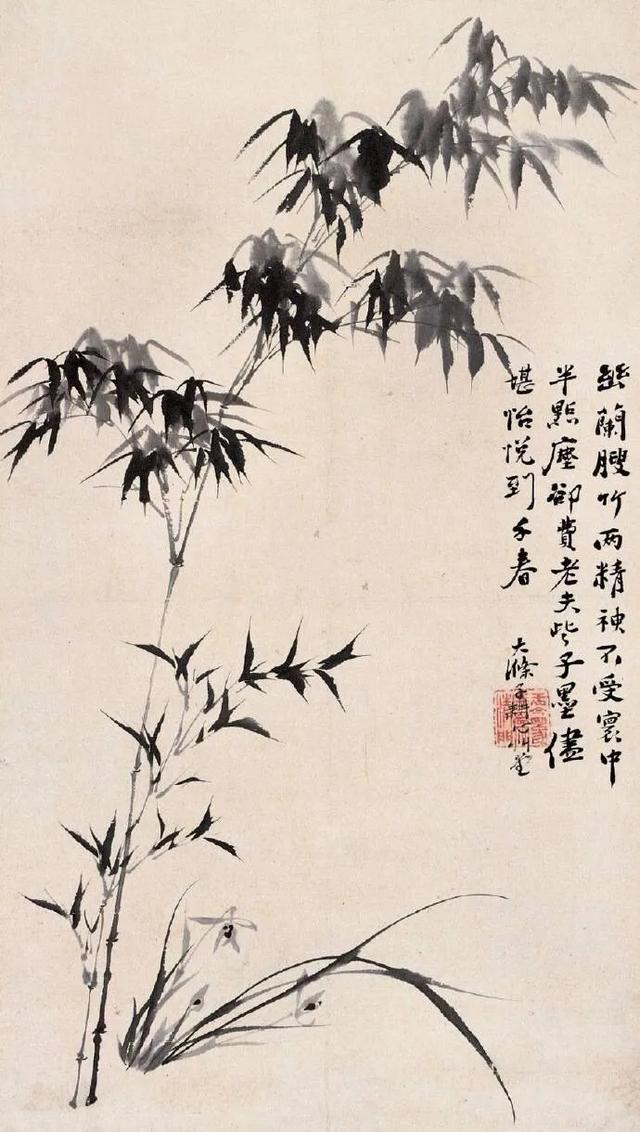 幽蘭膄竹兩精神不受寰中
半點塵卻費老夫些子墨儘
堪怡悅到千春
大滌子耕心艸堂